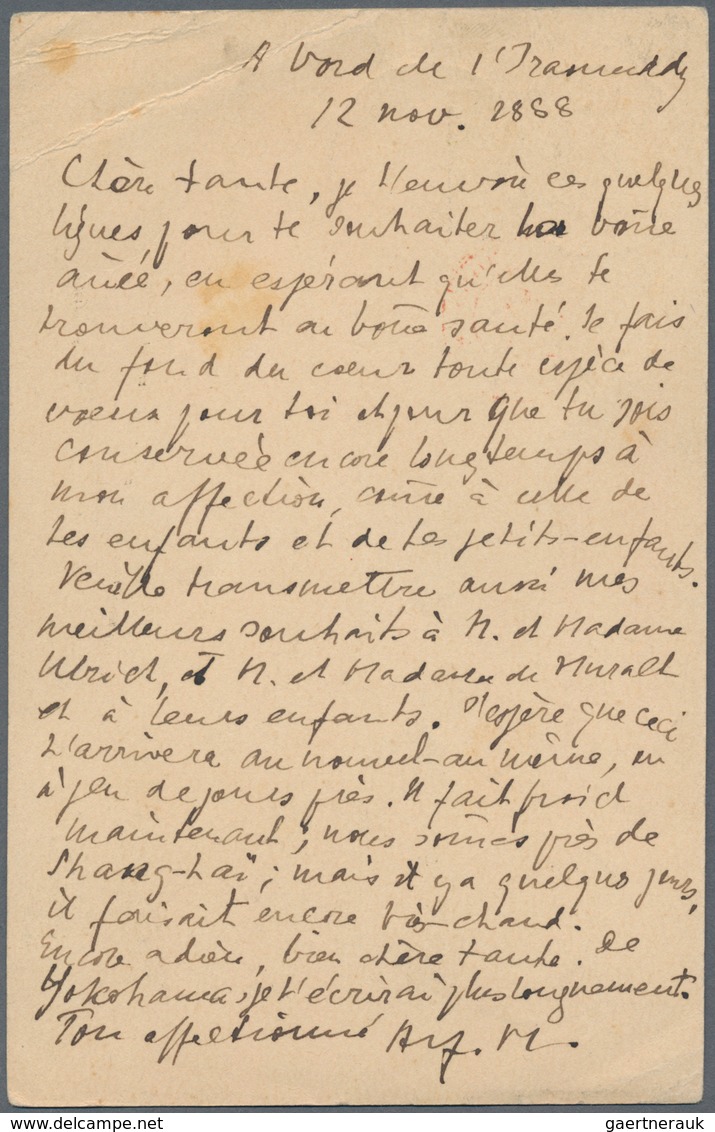 A bord de l'Iraouaddy
12 nov. 1888
Chère tante, je t'envoie ces quelques
lignes pour te souhaiter la bone
anée, en espérant qu'elles te
trouveront en bone santé. Je fais
du fond du cœur toute espèce de
voeux pour toi et pour que tu sois
conservée encore longtemps à
mon affection, come à celle de
tes enfants et de tes petits-enfants.
Veuille transmettre aussi mes
meilleurs souhaits à M. et Madame
Ulrich, et M. et Madame de Muralt
et à leurs enfants. J'espère que ceci
t'arrivera au nouvel-an même, ou
à peu de jours près. Il fait froid
maintenant; nous somes près de
Shang-haï; mais il y a quelques jours,
il faisait encore bien chaud.
Encore adieu, bien chère tante. De
Yokohama, je t'écrirai plus longuement.
Ton affectionné
delcampe.net
gaertnerauk